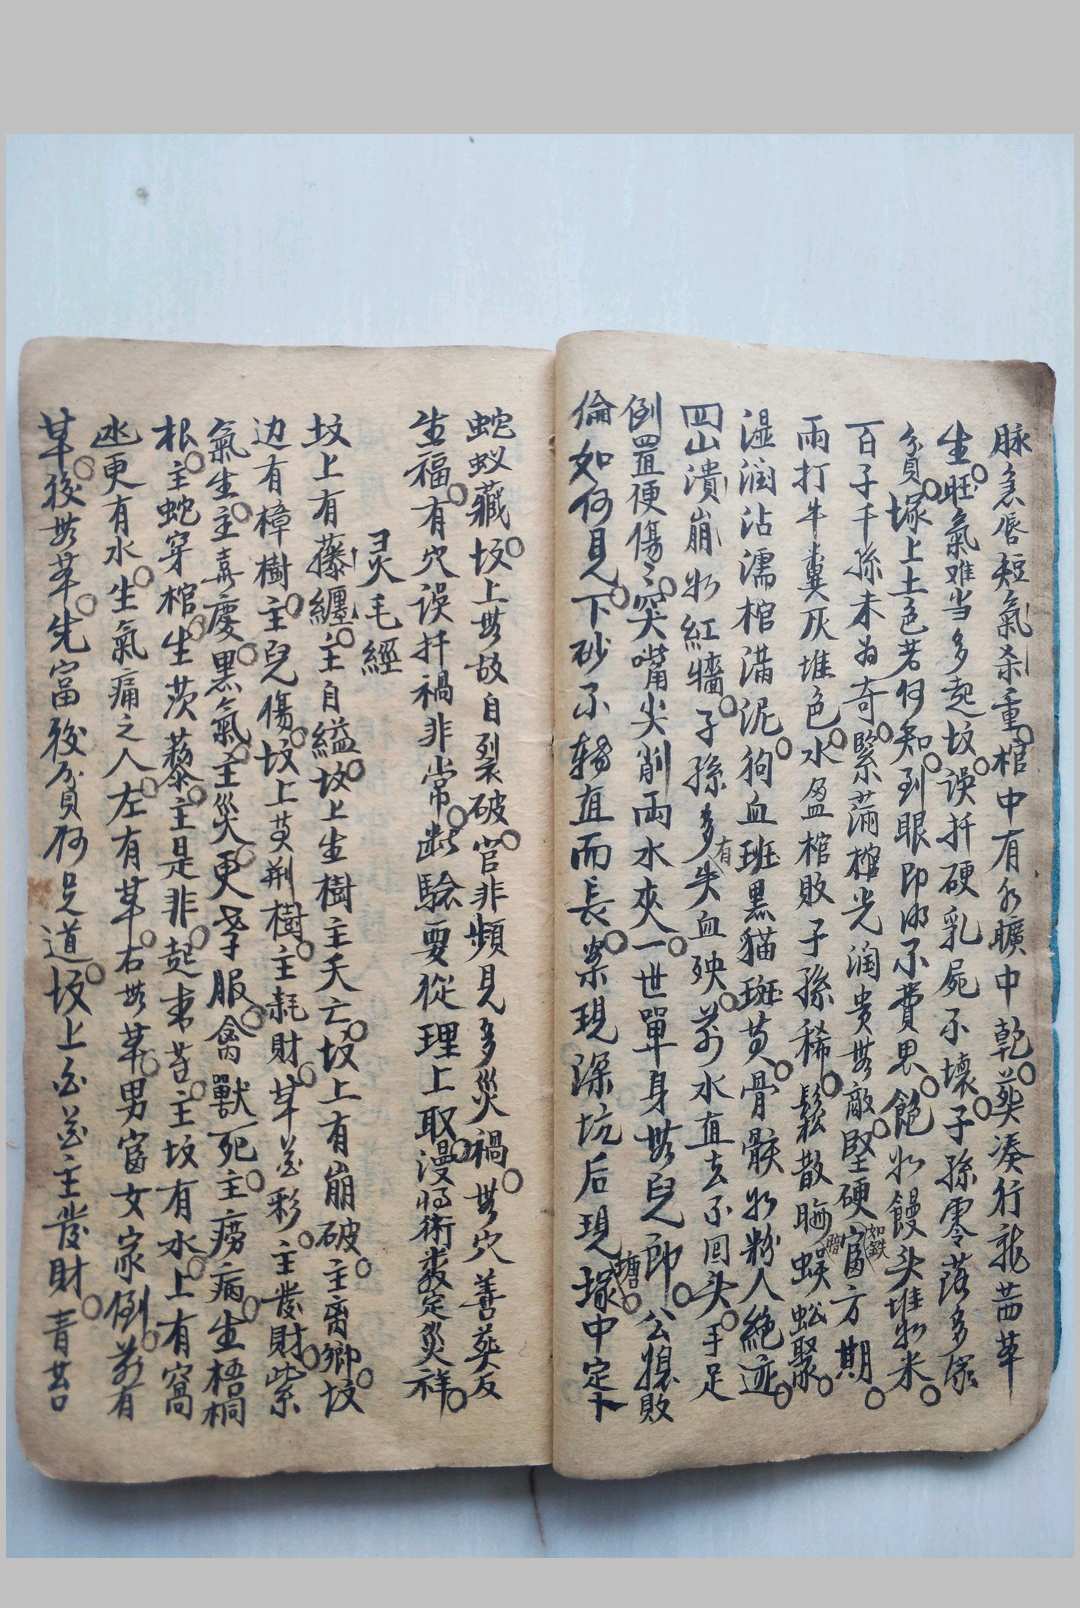 脉急唇短氣杀重棺中有水曠中乾葵凑行龍苗草
生旺氣难当多起坟误扦硬乳屍不壞子孫零落多家
貧塚上土色若何知到眼即明不費思飽如饅头堆如米
百子千孫未為奇緊滿棺光潤贵無敵堅硬如鉄富方期
雨打牛糞灰堆色水盈棺敗子孫稀鬆散晦蜈蚣聚
湿润沾濡棺满泥狗血斑黑猫斑黄骨骸如粉人絶迹
四山潰崩如紅牆子孫多有失血殃前水直去不回头手足
例置便傷突嘴尖削両水夾一世單身無兒郎公媳敗
倫如何見下砂不轉直而長案現深坑后現塘塚中定卜
蛇蚁藏坟上無故自裂破官非頻見多災禍無穴善葵反
生福有穴误扦禍非常断驗要從理上取漫将術数定災祥
灵毛經
坟上有藤纏主自縊坟上生樹主夭亡坟上有崩破主离鄉坟
边有樟樹主兒傷坟上黄荆樹主耗財草花彩主發財紫
氣生主喜慶黑氣主災更孝服禽獸死主痨病生梧桐
根主蛇穿棺生茨藜主是非起青苔主坟有水上有窩
氹更有水生氣痛之人左有草右無草男富女家倒前有
草後無草先富後貧何足道坟上百花主發財青苔